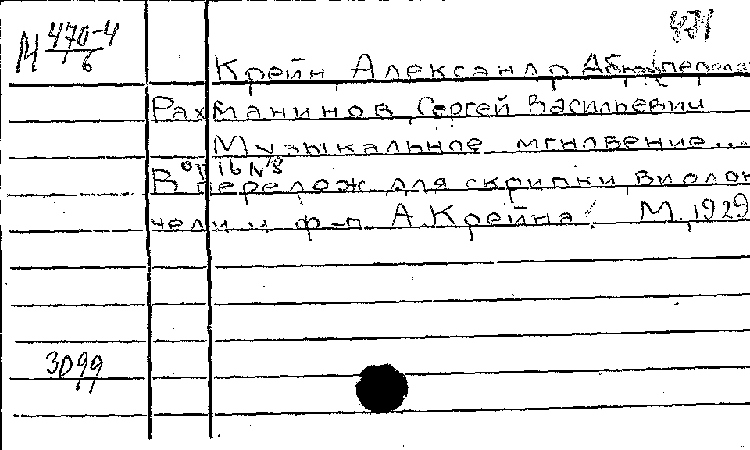 431
М 470-4
6
Крейн, Александр Абр. (перелож
Рахманинов, Сергей Васильевич
Музыкальное мгновение...
ор 16 №3
В перелож для скрипки, виолон
чели и ф-п. А. Крейна. М., 1929
3099